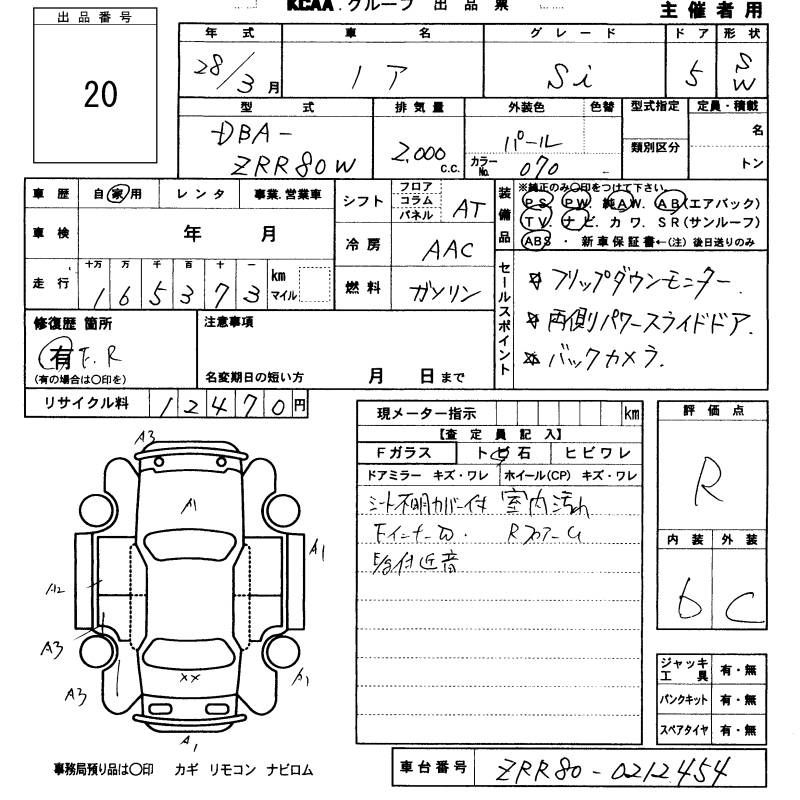 出品番号
20
KCAA.グループ 出品票
主催者用
年式 車名 グレード ドア 形状
28/3月 ノア Si 5 SW
型式 排気量 外装色 色替 型式指定 定員・積載
DBA-
ZRR80W
2,000 c.c.
パール
カラーNo. 070
類別区分
名
トン
車歴 自家用 レンタ 事業.営業車
車検 年 月
走行 十万 万 千 百 十 一
165373 km マイル
シフト フロア コラム パネル AT
冷房 AAC
燃料 ガソリン
装備品
※純正のみ〇印をつけて下さい.
PS. PW. 純AW. AB(エアバック)
TV. ナビ. カワ. SR(サンルーフ)
ABS ・ 新車保証書←(注)後日送りのみ
セールスポイント
☆フリップダウンモニター.
☆両側パワースライドドア.
☆バックカメラ.
修復歴 箇所
有 F.R
(有の場合は〇印を)
注意事項
名変期日の短い方 月 日まで
リサイクル料 12470円
現メーター指示 km
【査定員記入】
Fガラス トビ石 ヒビワレ
ドアミラー キズ・ワレ ホイール(CP) キズ・ワレ
シート不明カバー付 室内汚れ
Fインナー切. Rフロアーム
付近音
評価点
R
内装 外装
6 C
A3
A1
A1
A2
A3
A3
A1
XX
A1
ジャッキ工具 有・無
パンクキット 有・無
スペアタイヤ 有・無
事務局預り品は〇印 カギ リモコン ナビロム
車台番号 ZRR80-0212454